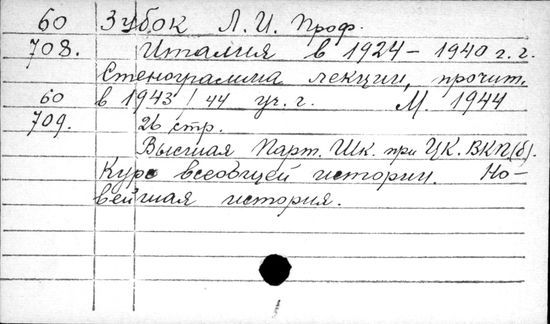 60 Зубок Л. И. Проф.
708. Италия в 1924 – 1940 г.г.
Стенограмма лекции, прочит.
60 в 1943/44 уч. г. М. 1944
709. 26 стр.
Высшая Парт. Шк. при ЦК. ВКП(б).
Курс всеобщей истории. Но-
вейшая история.